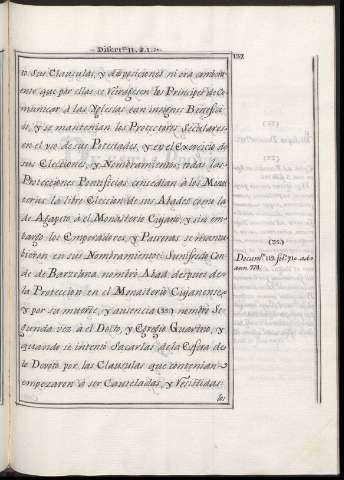 Disert.ⁿ II. §. I.
137
to sus Clausulas, y disposiciones ni era ambiente
que por ellas se
municar à las Yglesias tan insignes Benefici
os, y se mantenian los Protectores Seculares
en el uso de sus Potestades, y en el Exercicio de
sus Elecciones, y Nombramientos; todas las
Protecciones Pontificias concedian à los Monas
terios la libre Eleccion de sus Abades como la
de Agapito à el Monasterio Cujano, y sin em
bargo los Emperadores, y Patronos se mantu
bieron en sus Nombramientos. Sunifredo Con
de de Barzelona nombrò Abad despues de
la Proteccion en el Monasterio Cujanense,
y por su muerte, y ausencia (35) nombrò Se
gunda vez à el Docto, y Egregio Guarino, y
quando se intentò Sacarlas de la Esfera de
lo Devoto por las Clausulas que contenian
empezaron à ser Cauteladas, y Resistidas
los
(35)
Docum.ᵗᵒ
ann. 778.